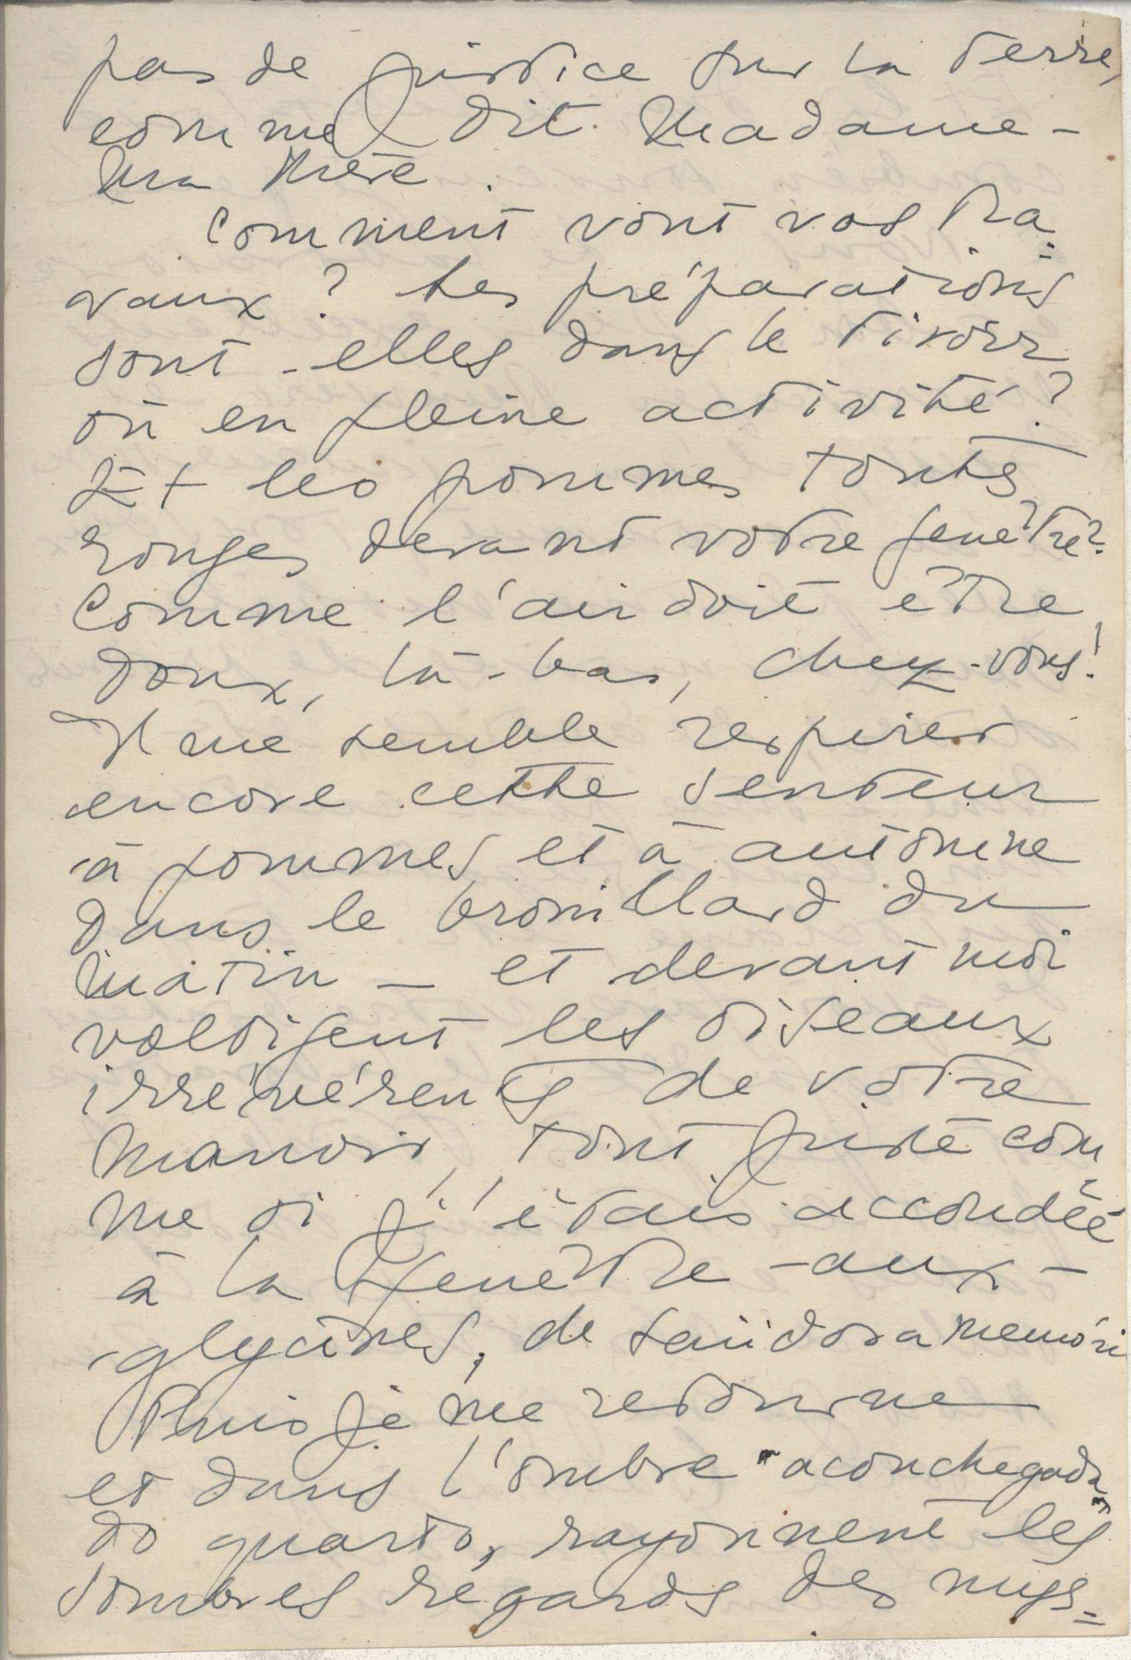 pas de justice sur la terre,
comme dit Madame-
Ma Mère.
Comment vont vos tra=
vaux? Les préparations
sont-elles dans le tiroir
ou en pleine activité?
Et les pommes toutes
rouges devant votre fenêtre?
Comme l'air doit être
doux, là-bas, chez-vous!
Il me semble respirer
encore cette senteur
à pommes et à automne
dans le brouillard du
matin – et devant moi
voltigent les oiseaux
irrévérents de votre
manoir, tout juste com
me si j'étais accoudée
à la fenêtre-aux-
glycines, de saüdosa memóri
Puis je me retourne
et dans l'ombre "aconchegada"
do quarto, rayonnent les
sombres regards des mys=